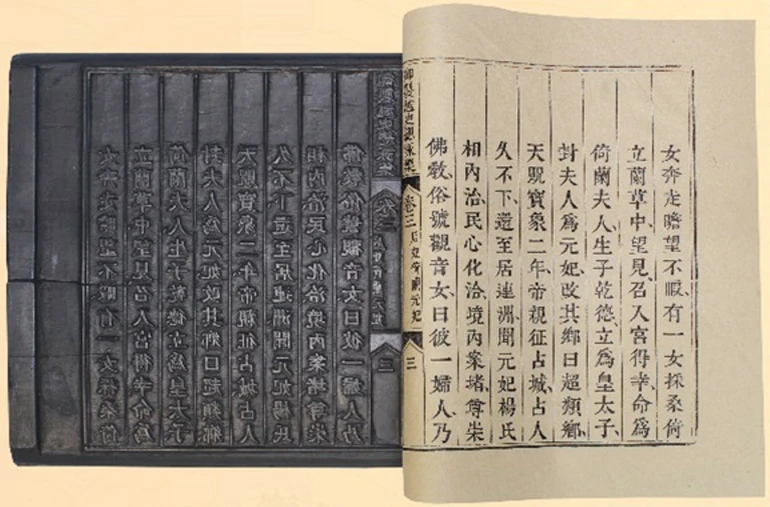 女奔走瞻望不暇、有一女採桑倚
立蘭草中、望見、召入宮得幸、命爲
倚蘭夫人、生子乾德、立爲皇太子、
封夫人爲元妃、改其鄉曰超類鄉、
天貺寶象二年、帝親征占城、占人
久不下、還至居連洲、聞元妃楊氏
相內治、民心化洽、境內案堵、尊崇
佛教、俗號觀音女曰彼一婦人、乃
御製越史總詠集
卷三 后妃 倚蘭元妃
三